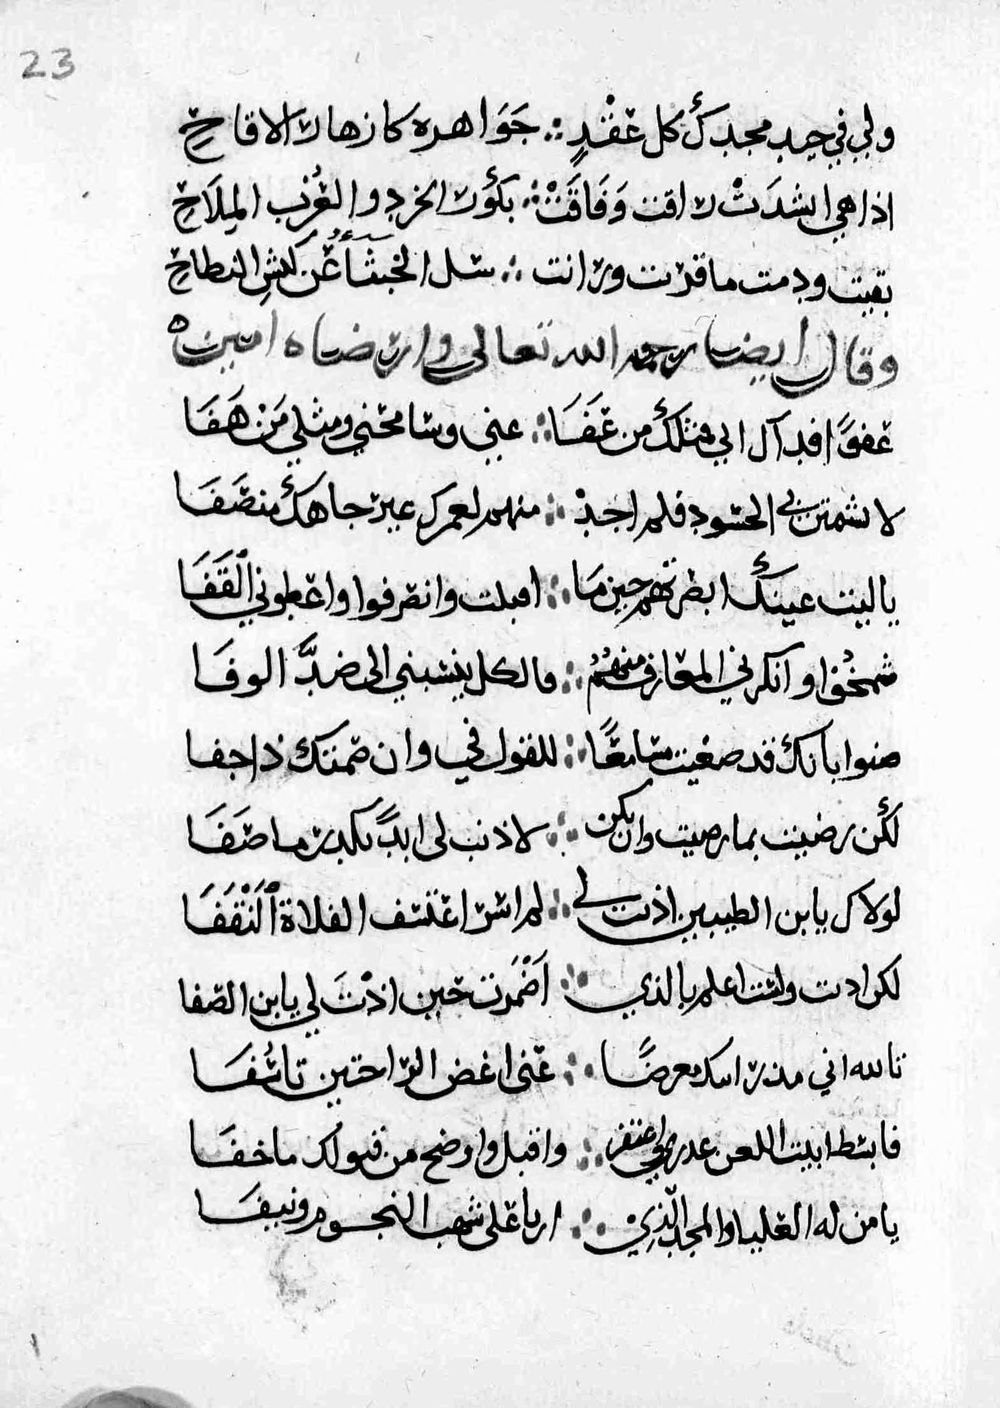 23
ولي في جيد مجدك كل عقد ∴ جَوَاهره كازهار الاقاحِ
اذا هي انشدَتْ راقت وَفَاقَتْ ∴ بكور الخرد والعُرُب المِلَاحِ
بقيت ودمت ما قرت ورانت ∴ سل الخبثاء عن كبشِ النطاحِ
وقال ايضا رحمه الله تعالى وارضاه امين ه
عفوًا فدآل ابي مثلك من عَفَا ∴ عني وسامحني ومثلي مَنْ هَفَا
لا تشمتن بي الحسود فلم اجدْ ∴ منهم لعمرك غير جاهك منصَفَا
ياليت عينك ابصرتهم حين مَا ∴ اقبلت وانصرفوا واعطوني ٱلقَفَا
شمخُوا وانكرني المعارف منهُمُ ∴ فالكل ينسبني الى ضدَّ الوفَا
ظنوا بانك قد صغيت مسامعًا ∴ للقول في وان ضمتك ذا جفا
لئن رضيت بما رضيت وان يكن ∴ لا ذنب لي ابدًا يكدر ما صَفَا
لولاك يابن الطيبين اذنت لي ∴ لم اسر اعتسف الفلاة ٱلنَفْنَفَا
لكن اردت ولست اعلم بالذي ∴ اَضْمَرت حين اذنْتَ لي يابن الصفا
تالله اني مذ رايتك معرضًا ∴ عني اغض الراحتين تاسُّفَا
فابسط ابيت اللعن عذري واغتفر ∴ واقبل واوضح من قبولك ماخفَا
يامن له العليا والمجد الّذِيْ ∴ اربا على شهب النجوم ونيفَا